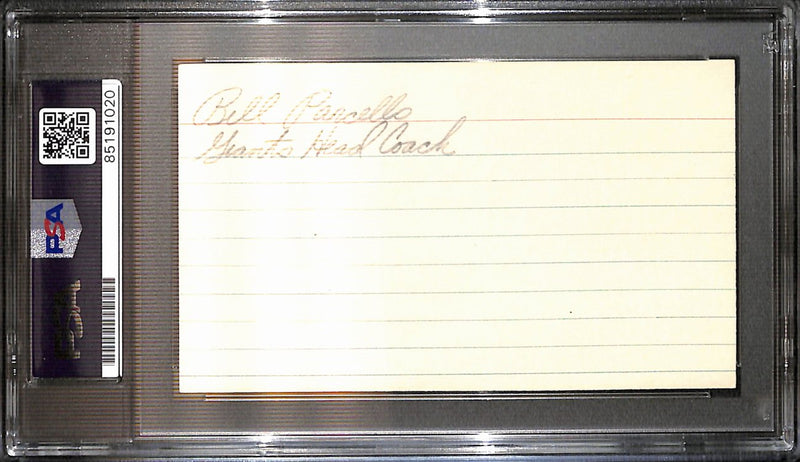 Bill Parcells
Giants Head Coach
85191020
PSA